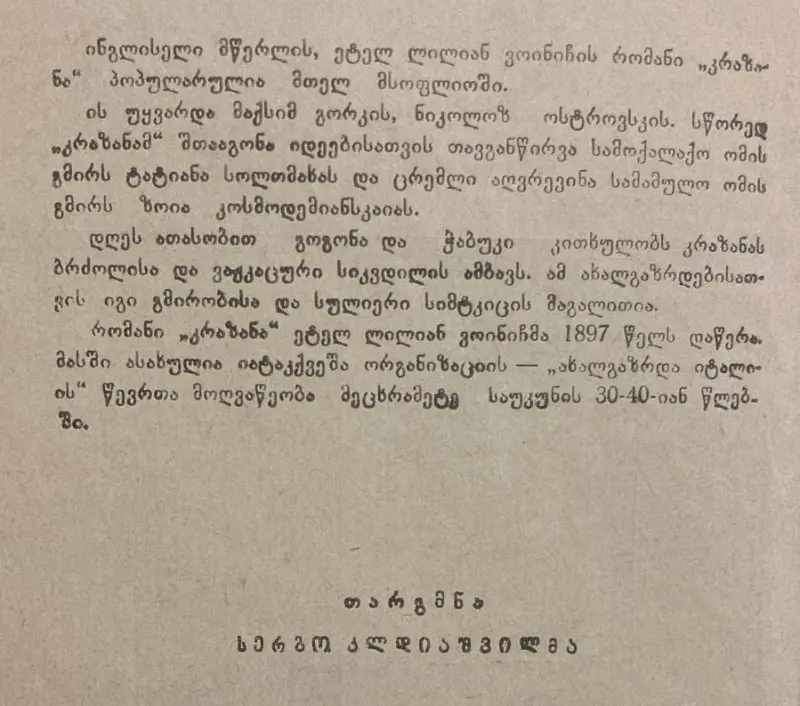 ინგლისელი მწერლის, ეტელ ლილიან ვოინიჩის რომანი „კრაზა-
ნა“ პოპულარულია მთელ მსოფლიოში.
ის უყვარდა მაქსიმ გორკის, ნიკოლოზ ოსტროვსკის. სწორედ
„კრაზანამ“ შთააგონა იდეებისათვის თავგანწირვა სამოქალაქო ომის
გმირს ტატიანა სოლომახას და ცრემლი აღვრევინა სამამულო ომის
გმირს ზოია კოსმოდემიანსკაიას.
დღეს ათასობით გოგონა და ჭაბუკი კითხულობს კრაზანას
ბრძოლისა და ვაჟკაცური სიკვდილის ამბავს. ამ ახალგაზრდებისათ-
ვის იგი გმირობისა და სულიერი სიმტკიცის მაგალითია.
რომანი „კრაზანა“ ეტელ ლილიან ვოინიჩმა 1897 წელს დაწერა.
მასში ასახულია იატაკქვეშა ორგანიზაციის — „ახალგაზრდა იტალი-
ის“ წევრთა მოღვაწეობა მეცხრამეტე საუკუნის 30-40-იან წლებ-
ში.
თარგმნა
სერგო კლდიაშვილმა